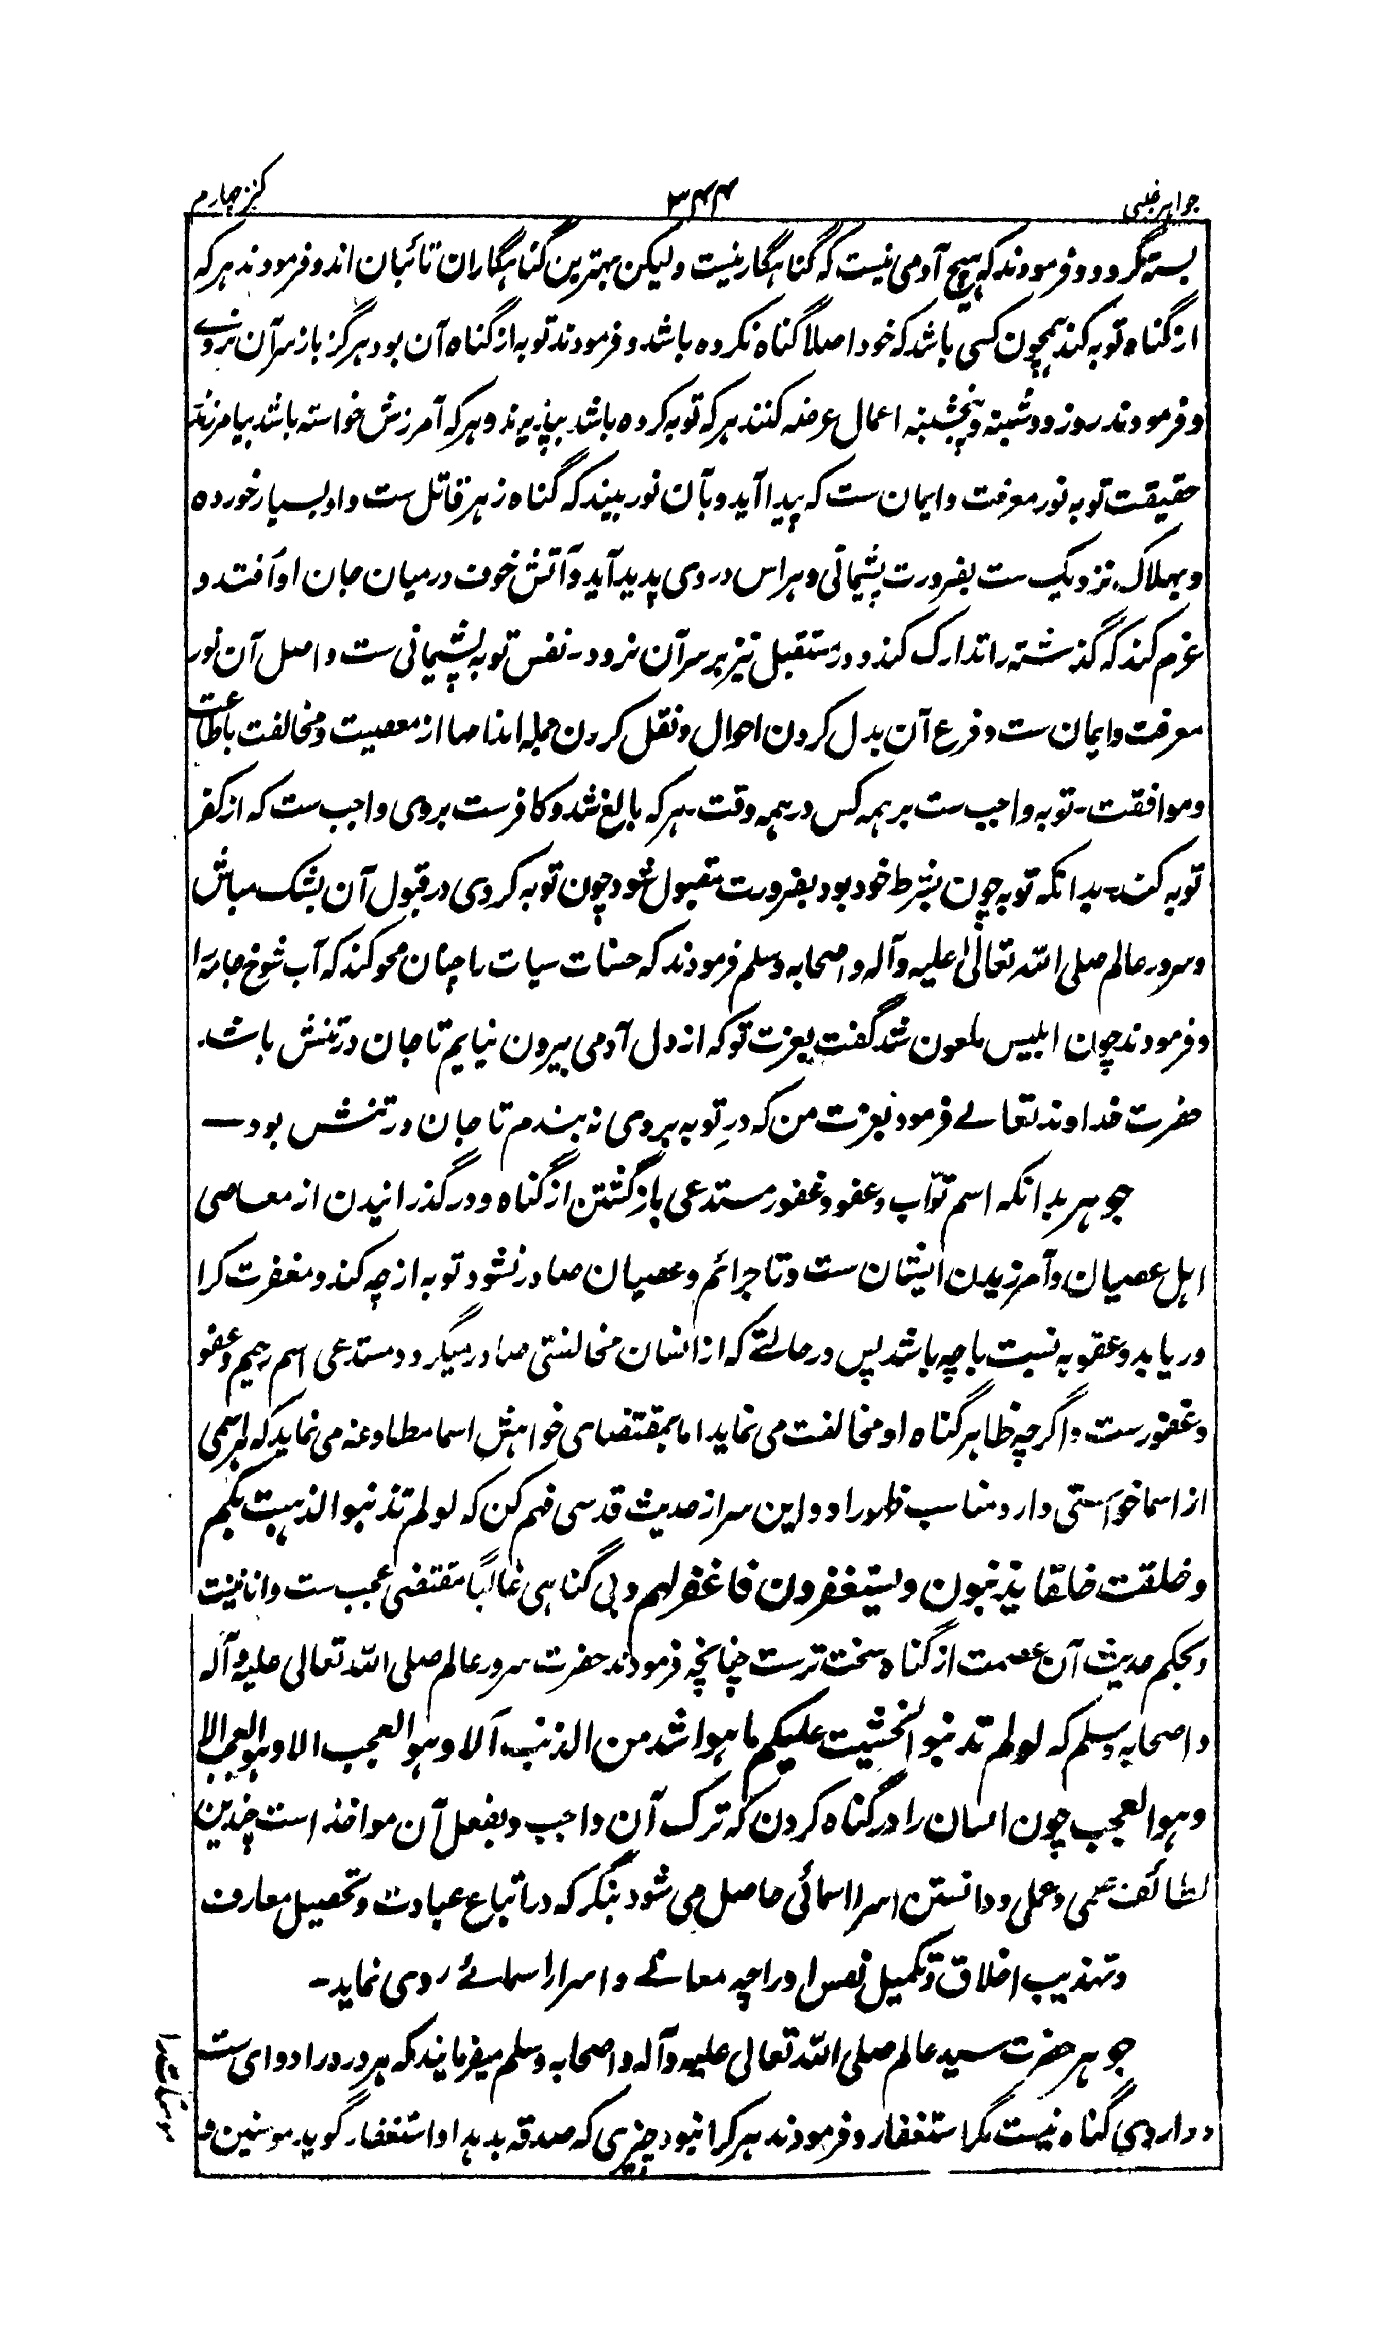 جواهر غیبی
۳۴۴
کنز چهارم
بسته نگردد و فرمودند که هیچ آدمی نیست که گناهگار نیست ولیکن بهترین گناهگاران تائبان اند و فرمودند هر که
از گناه توبه کند همچون کسی باشد که خود اصلاً گناه نکرده باشد و فرمودند توبه از گناه آن بود هرگز باز سر آن نروے
و فرمودند روز دوشنبه و پنجشنبه اعمال عرضه کنند هر که توبه کرده باشد بپذیرند و هر که آمرزش خواسته باشد بیامرزند
حقیقت توبه نور معرفت و ایمان ست که پیدا آید و بآن نور بیند که گناه زهر قاتل ست و او بسیار خورده
و بهلاک نزدیک ست بضرورت پشیمانی و هراس در وی پدید آید و آتش خوف درمیان جان او افتد و
عزم کند که گذشته را تدارک کند و در مستقبل نیز بر سر آن نرود۔ نفس توبه پشیمانی ست و اصل آن نور
معرفت و ایمان ست و فرع آن بدل کردن احوال و نقل کردن جمله اندامها از معصیت و مخالفت باطاعت
و موافقت۔ توبه واجب ست بر همه کس در همه وقت۔ هر که بالغ شد و کافرست بروی واجب ست که از کفر
توبه کند۔ بدانکه توبه چون بشرط خود بود بضرورت مقبول شود چون توبه کردی در قبول آن بشک مباش
و سرور عالم صلی الله تعالیٰ علیه و آله و اصحابه وسلم فرمودند که حسنات سیات را چنان محو کند که آب شوخ جامه را
و فرمودند چون ابلیس ملعون شد گفت بعزت تو که از دل آدمی بیرون نیایم تا جان در تنش باشد۔
حضرت خداوند تعالے فرمود بعزت من که در توبه بروی نه بندم تا جان در تنش بود ــ
جوهر بدانکه اسم توّاب و عفو و غفور مستدعی بازگشتن از گناه و درگذرانیدن از معاصی
اهل عصیان و آمرزیدن ایشان ست و تا جرائم و عصیان صادر نشود توبه از چه کند و مغفرت کرا
دریابد و عقوبه نسبت باچه باشد پس در حالتے که از انسان مخالفتی صادر میگردد مستدعی اسم رحیم و عفو
و غفورست و اگرچه ظاهر گناه او مخالفت می نماید اما بمقتضای خواهش اسما مطاوعه می نماید که هر اسمی
از اسما خواستی دارد مناسب ظهور او و این سر از حدیث قدسی فهم کن که لو لم تذنبوا لذهبت بکم
و خلقت خلقا یذنبون و یستغفرون فاغفر لهم و بی گناهی غالباً مقتضی عجب ست و انانیت
و بحکم حدیث آن عصمت از گناه سخت ترست چنانچه فرمودند حضرت سرور عالم صلی الله تعالی علیه و آله
و اصحابه وسلم که لو لم تذنبوا لخشیت علیکم ما هو اشد من الذنب الا و هو العجب الا و هو العجب الا
و هو العجب چون انسان را در گناه کردن که ترک آن واجب و بفعل آن مواخذه است چندین
لطائف علمی و عملی و دانستن اسرار اسمائی حاصل می شود بنگر که در اتباع عبادت و تحصیل معارف
و تهذیب اخلاق و تکمیل نفس او را چه معانے و اسرار اسمائے روی نماید۔
جوهر حضرت سید عالم صلی الله تعالی علیه و آله و اصحابه وسلم میفرمایند که هر درد را دوای ست
و داروی گناه نیست مگر استغفار و فرمودند هر کرا نبود چیزی که صدقه بدهد او استغفار گوید مومنین و
مومنات را